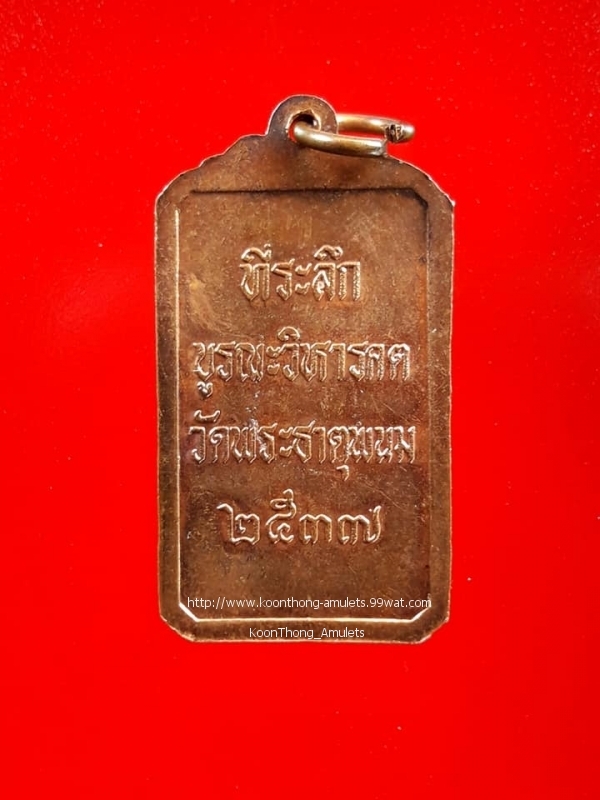 ที่ระลึก
บูรณะวิหารคต
วัดพระธาตุพนม
๒๕๓๗
http://www.koonthong-amulets.99wat.com
KoonThong_Amulets